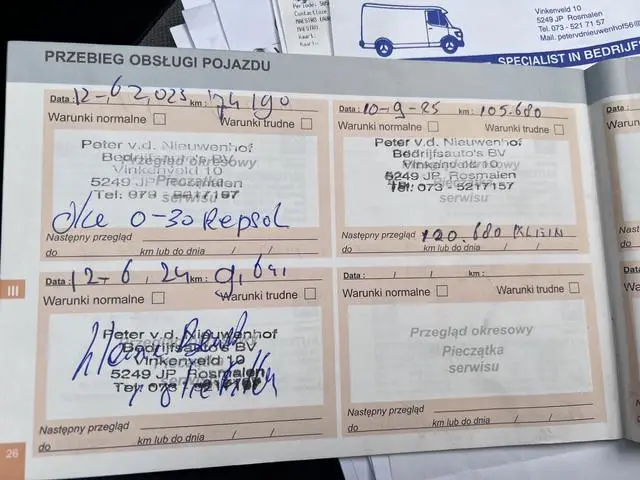 Vinkenveld 10
5249 JP Rosmalen
Tel. 073 - 521 71 57
Mail. petervdnieuwenhof56@
SPECIALIST IN BEDRIJF
PRZEBIEG OBSŁUGI POJAZDU
Data: 12-6 2023 km: 74 190
Warunki normalne Warunki trudne
Peter v.d. Nieuwenhof
Bedrijfsauto's BV
Przegląd okresowy
Vinkenveld 10
Pieczątka
5249 JP Rosmalen
serwisu
Tel: 073 - 5217157
Olie 0-30 Repsol
Następny przegląd
do km lub do dnia / /
Data: 10-9-25 km: 105.680
Warunki normalne Warunki trudne
Peter v.d. Nieuwenhof
Bedrijfsauto's BV
Przegląd okresowy
Vinkenveld 10
5249 JP Rosmalen
Tel: 073 - 5217157
serwisu
Następny przegląd 120.680
do km lub do dnia / /
Data: 12-6, 24 km:
Warunki normalne Warunki trudne
Peter v.d. Nieuwenhof
Bedrijfsauto's BV
Vinkenveld 10
5249 JP Rosmalen
Tel: 073 - 5217157
Następny przegląd
do km lub do dnia / /
Data: / / km:
Warunki normalne Warunki trudne
Przegląd okresowy
Pieczątka
serwisu
Następny przegląd
do km lub do dnia / /
III
26